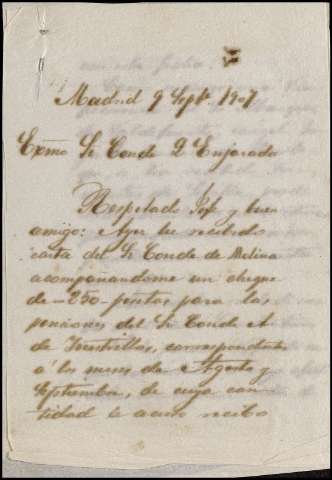 Madrid 9 Septe. 1907
Exmo Sr Conde D Enjarada
Respetado Jefe y buen
amigo: Ayer he recibido
carta del Sr Conde de Molina
acompañandome un cheque
de -250- pesetas para las
pensiones del Sr Conde
de Torrubia, correspondientes
á los meses de Agosto y
Septiembre, de cuya can-
tidad le acuso recibo